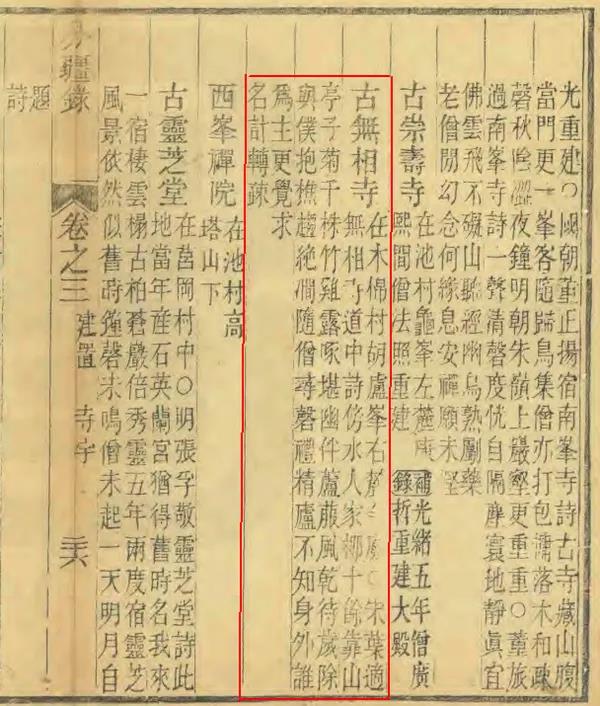 光重建○國朝董正揚宿南峯寺詩古寺藏山腹
當門更一峯客隨歸鳥集僧亦打包慵落木和疎
磬秋陰濕夜鐘明朝朱嶺上巖壑更重重○董旅
過南峯寺詩一聲清磬度恍自隔塵寰地靜眞宜
佛雲飛不礙山聽經幽鳥熟劚藥
老僧閒幻念何緣息安禪願未堅
古崇壽寺
在池村龜峯左麓
熙間僧法照重建
補光緒五年僧廣
錄哲重建大殿
古無相寺
在木棉村胡盧峯右麓 廢○宋葉適
無相寺道中詩傍水人家柳十餘靠山
亭子菊千株竹雞露啄堪幽伴蘆菔風乾待歲除
與僕抱樵趨絕澗隨僧尋磬禮精廬不知身外誰
爲主更覺求
名計轉疎
西峯禪院
在池村高
塔山下
古靈芝堂
在莒岡村中○明張孚敬靈芝堂詩此
地當年産石英蘭宮猶得舊時名我來
一宿棲雲榻古柏蒼巖倍秀靈五年兩度宿靈芝
風景依然似舊時鐘磬未鳴僧未起一天明月自
疆錄 卷之三 建置 寺宇 三六
題
詩